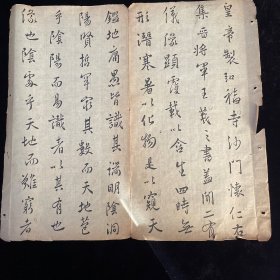 皇帝製弘福寺沙門懷仁右
集晉將軍王羲之書蓋聞二有
儀像顯覆載以含生四時無
形潛寒暑以化物是以窺天
鑑地庸愚皆識其端明陰洞
陽賢哲罕窮其數而天地苞
乎陰陽而易識者以其有也
像也陰處乎天地而難窮者